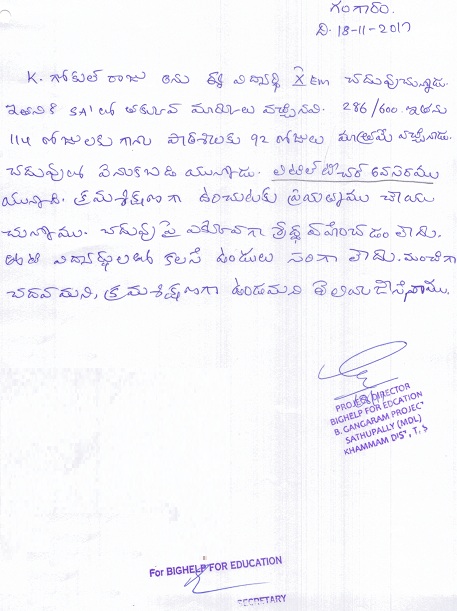 గంగారం.
ది. 18-11-2017
K. గోకుల్ రాజు అను ఈ విద్యార్థి X Em చదువుచున్నాడు.
ఇతనికి SA1 లో తక్కువ మార్కులు వచ్చినవి. 286/600. ఇతను
114 రోజులకు గాను పాఠశాలకు 92 రోజులు మాత్రమే వచ్చినాడు.
చదువులో వెనుకబడి యున్నాడు. లిటిల్ టీచర్ అవసరము
యున్నది. క్రమశిక్షణగా ఉంచుటకు ప్రయత్నము చేయు
చున్నాము. చదువు పై ఎక్కువగా శ్రద్ధ వహించడం లేదు.
తోటి విద్యార్థులతో కలసి ఉండుట సరిగా లేదు. మంచిగా
చదవమని, క్రమశిక్షణగా ఉండమని తెలియజేసినాము.
PROJECT DIRECTOR
BIGHELP FOR EDCATION
B. GANGARAM PROJECT
SATHUPALLY (MDL)
KHAMMAM DIST, T. S
For BIGHELP FOR EDUCATION
SECRETARY